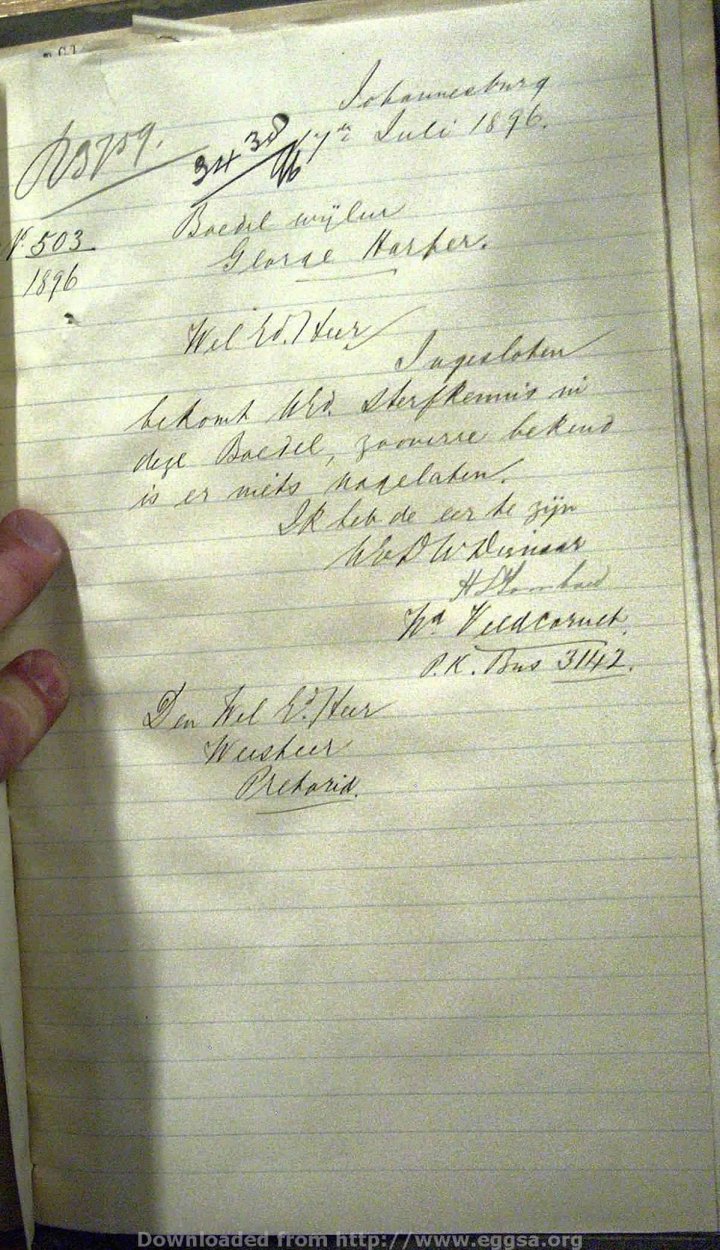 Johannesburg
17de Juli 1896.
3438/96
No. 503
1896
Boedel wijlen
George Harper.
Wel Ed. Heer
Ingesloten
bekomt WEd. Sterfkennis in
deze Boedel, zooverre bekend
is er niets nagelaten.
Ik heb de eer te zijn
WEd Dw Dienaar
H S Lombard
Wd. Veldcornet.
P.K. Bus 3142.
Den Wel Ed. Heer
Weesheer
Pretoria.
Downloaded from http://www.eggsa.org